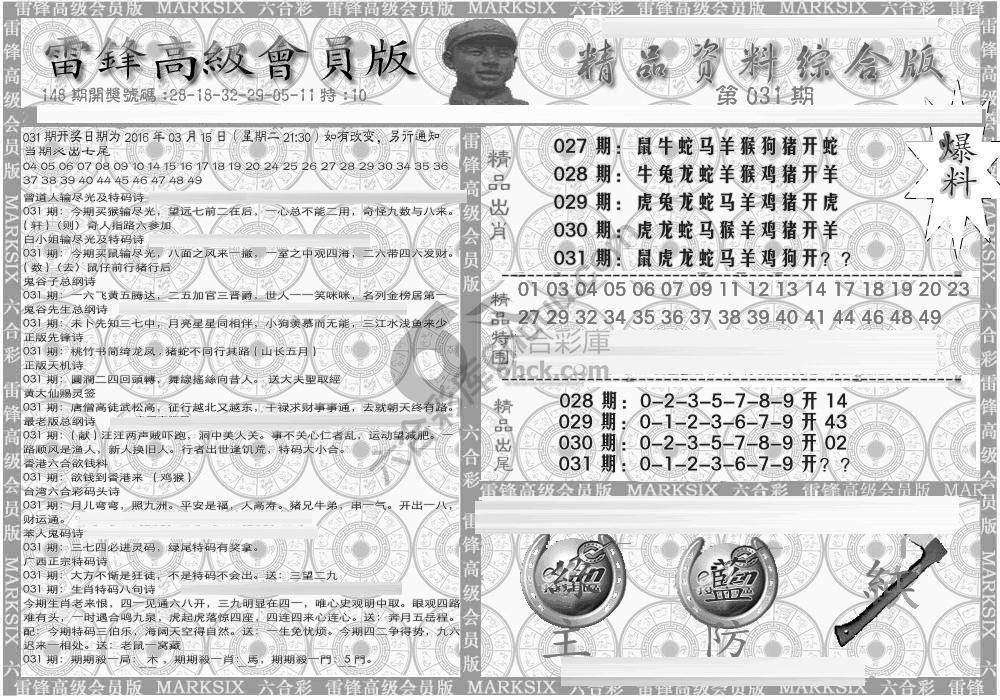 雷锋高级会员版 MARKSIX 六合彩 雷锋高级会员版 MARKSIX 六合彩 雷锋高级会员版 MARKSIX 六合彩
雷鋒高級會員版
148期開獎號碼:28-18-32-29-05-11特:10
精品资料综合版
第031期
爆料
031期开奖日期为2016年03月15日（星期二21:30）如有改变，另行通知
当期必出七尾
04 05 06 07 08 09 10 14 15 16 17 18 19 20 24 25 26 27 28 29 30 34 35 36
37 38 39 40 44 45 46 47 48 49
曾道人输尽光及特码诗
031期：今期买猴输尽光，望远七前二在后，一心总不能二用，奇怪九数与八来。
{轩}（则）奇人指路六参加
白小姐输尽光及特码诗
031期：今期买鼠输尽光，八面之风来一撤，一室之中观四海，二六带四六发财。
{数}（去）鼠仔前行猪行后
鬼谷子总纲诗
031期：一六飞黄五腾达，二五加官三晋爵，世人一一笑咪咪，名列金榜居第一
鬼谷先生总纲诗
031期：未卜先知三七中，月亮星星同相伴，小狗羡慕而无能，三江水浅鱼来少
正版先锋诗
031期：桃竹书简绮龙凤．猪蛇不同行其路{山长五月}
正版天机诗
031期：圓潤二四回頭轉，舞線搖絲向昔人。送大夫聖取經
黄大仙赐灵签
031期：唐僧高徒武松高，征行越北又越东，干禄求财事事通，去就朝天终有路。
最老版总纲诗
031期：{献}汪汪两声贼吓跑，洞中美人关。事不关心仁者乱，运动望减肥。一
路顺风是渔人，新人换旧人。行者出世逢饥荒，特码大小合。
香港六合欲钱料
031期：欲钱到香港来 {鸡猴}
台湾六合彩码头诗
031期：月儿弯弯，照九洲。平安是福，人高寿。猪兄牛弟，串一气。开出一八，
财运通。
苯人鬼码诗
031期：三七四必进灵码，绿尾特码有奖拿。
广西正宗特码诗
031期：大方不惭是狂徒，不是特码不会出。送：三望二九
031期：生肖特码八句诗
今期生肖老来恨，四一见通六八开，三九明显在四一，唯心史观明中取。眼观四路
难有头，一时遇合鸣九泉，虎起虎落惊四座，四连四来心连心。送：奔月五岳程。
配：今期特码三伯乐，海阔天空得自然。送：一生免忧烦。今期四二争得势，九六
迟来一相处。送：老鼠一窝藏
031期：期期殺一局：木，期期殺一肖：馬，期期殺一門：5門。
精品出肖
027期：鼠牛蛇马羊猴狗猪开蛇
028期：牛兔龙蛇羊猴鸡猪开羊
029期：虎兔龙蛇马羊鸡猪开虎
030期：虎龙蛇马猴羊鸡猪开羊
031期：鼠虎龙蛇马羊鸡狗开？？
精品特围
01 03 04 05 06 07 09 11 12 13 14 17 18 19 20 23
27 29 32 34 35 36 37 38 39 40 41 44 46 48 49
精品出尾
028期：0-2-3-5-7-8-9开14
029期：0-1-2-3-6-7-9开43
030期：0-2-3-5-7-8-9开02
031期：0-1-2-3-6-7-9开？？
雷锋高级会员版 MARKSIX 六合彩 雷锋高级会员版
主
防
雷锋高级会员版 MARKSIX 六合彩 雷锋高级会员版 MARKSIX 六合彩 雷锋高级会员版 MARKSIX 六合彩